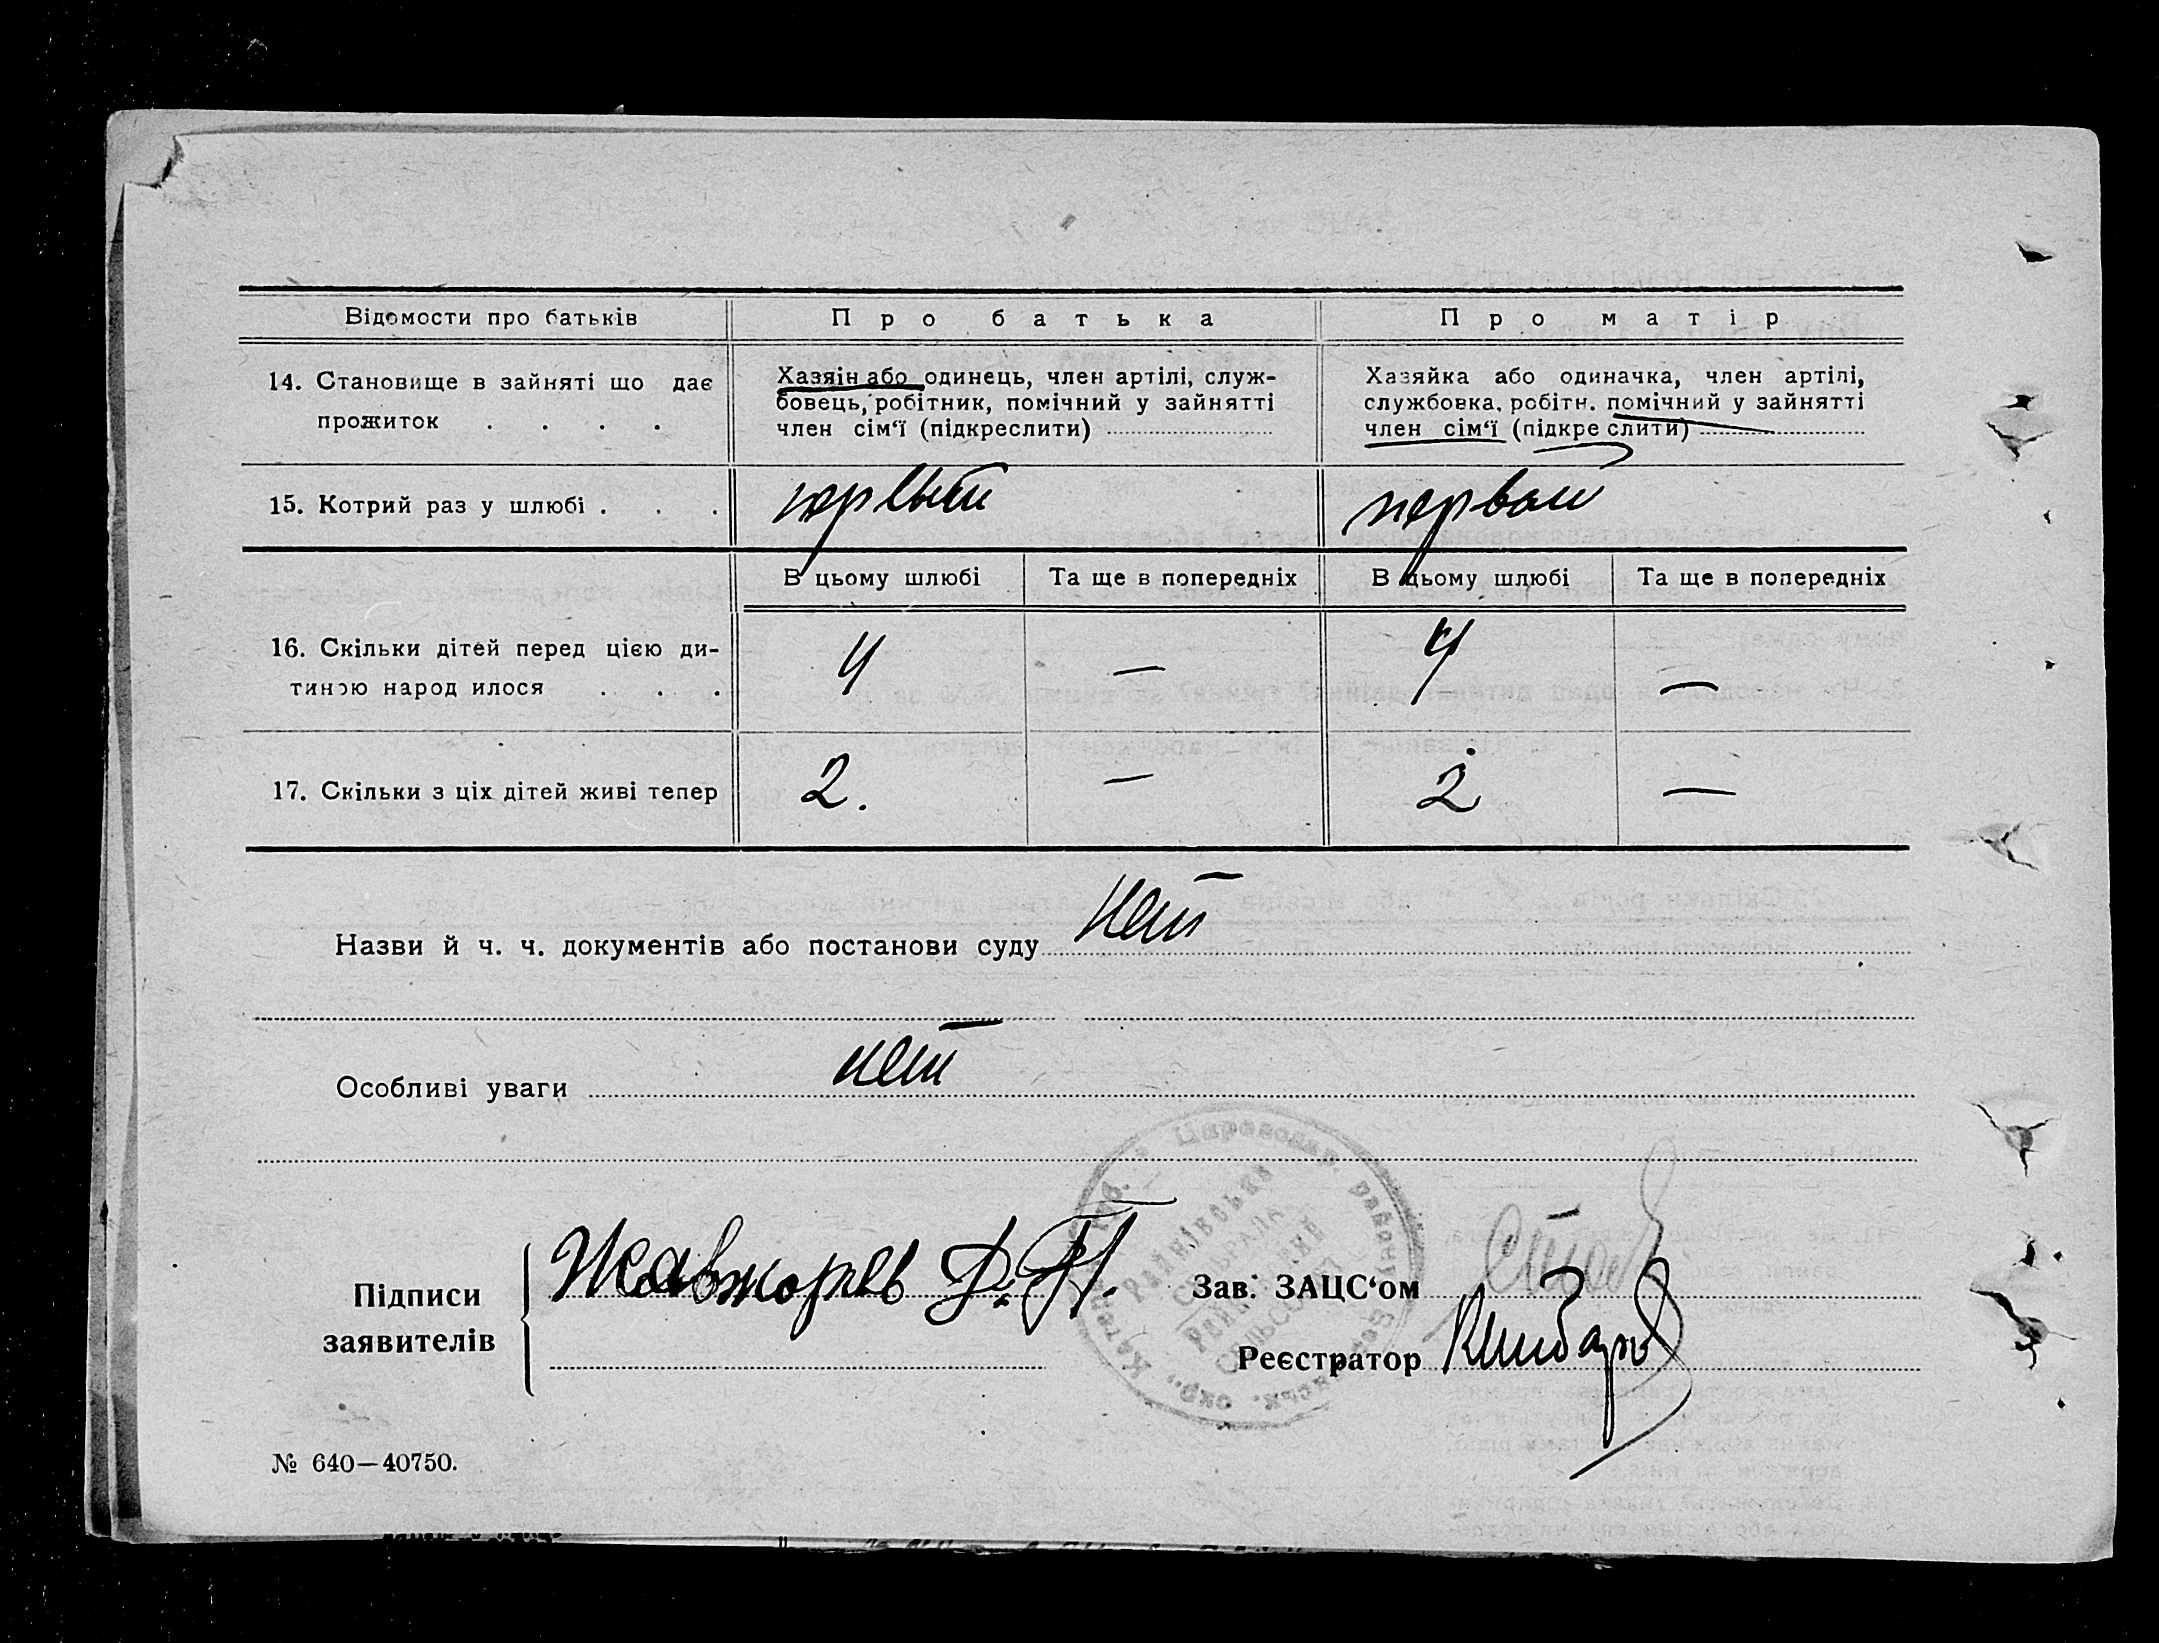 Відомости про батьків
Про батька
Про матір
14. Становище в зайняті що дає
прожиток . . . .
Хазяін або одинець, член артілі, служ-
бовець, робітник, помічний у зайнятті
член сім‘ї (підкреслити)
Хазяйка або одиначка, член артілі,
службовка, робітн. помічний у зайнятті
член сім‘ї (підкре слити)
15. Котрий раз у шлюбі . . .
первый
первый
В цьому шлюбі
Та ще в попередніх
В цьому шлюбі
Та ще в попередніх
16. Скільки дітей перед цією ди-
тиною народ илося . . .
4
—
4
—
17. Скільки з ціх дітей живі тепер
2.
—
2
—
Назви й ч. ч. документів або постанови суду нет
Особливі уваги нет
Підписи
заявителів
Д. П.
Зав. ЗАЦС‘ом
Реєстратор
№ 640—40750.